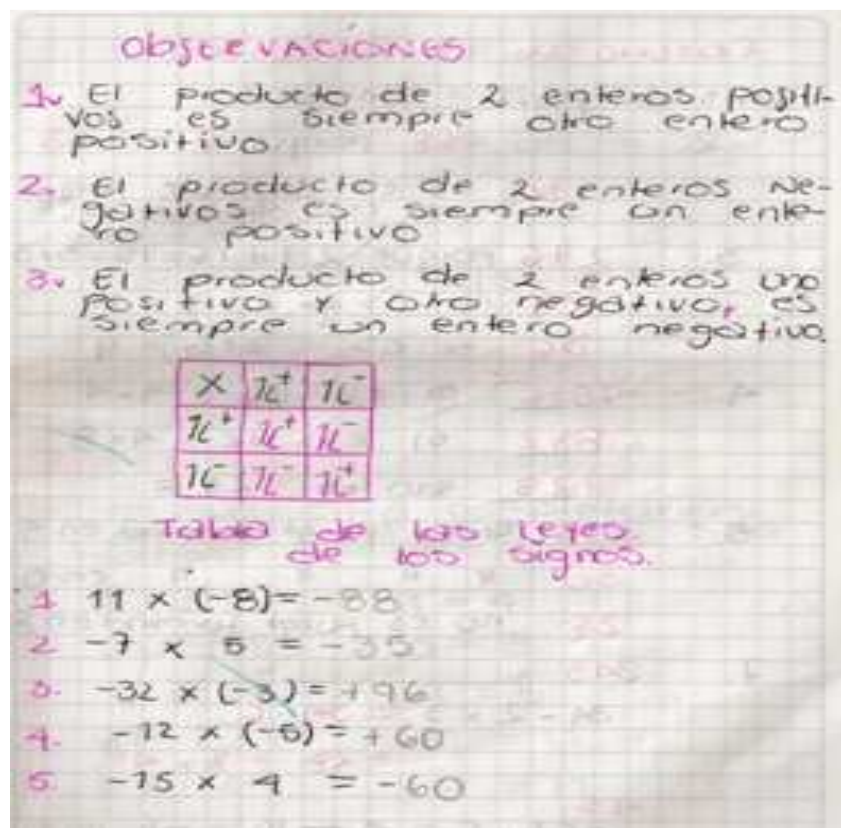 Observaciones
1. El producto de 2 enteros positi-
vos es siempre otro entero
positivo.
2. El producto de 2 enteros Ne-
gativos es siempre un ente-
ro positivo
3. El producto de 2 enteros uno
positivo y otro negativo, es
siempre un entero negativo.
× ℤ⁺ ℤ⁻
ℤ⁺ ℤ⁺ ℤ⁻
ℤ⁻ ℤ⁻ ℤ⁺
Tabla de las leyes
de los signos.
1. 11 × (-8) = -88
2. -7 × 5 = -35
3. -32 × (-3) = +96
4. -12 × (-5) = +60
5. -15 × 4 = -60